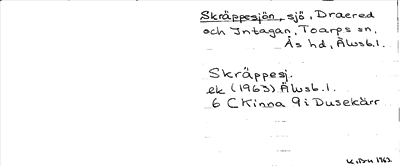 Skräppesjön, sjö, Draered
och Intagan, Toarps sn,
Ås hd, Älvsb.l.
Skräppesj.
ek (1963) Älvsb.l.
6 C Kinna 9 i Dusekärr
1962